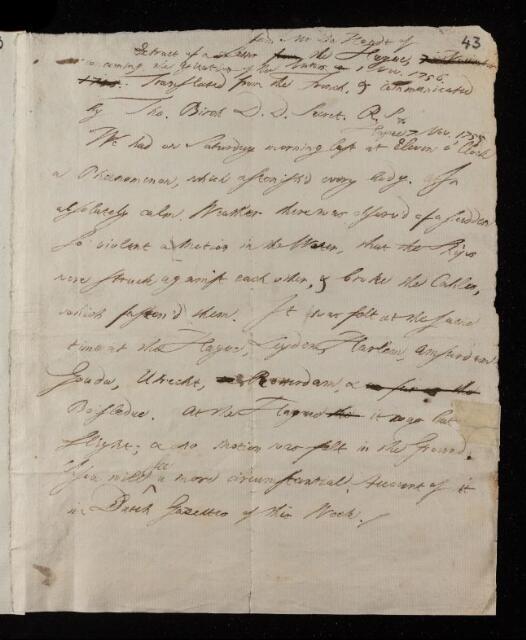 43
from Mr De Hondt of
Extract of a Letter from the Hague,
concerning the Agitation of the Waters, 1 Nov. 1755.
Translated from the French, & communicated
by Tho. Birch D. D. Secret. R. S.
Hague 7 Nov. 1755.
We had on Saturday morning last at Eleven o' Clock
a Phænomenon, which astonish'd every body. In
absolutely calm Weather there was observ'd of a sudden
so violent a Motion in the Water, that the Ships
were struck against each other, & broke the Cables,
which fasten'd them. It was felt at the same
time at the Hague, Leyden, Harlem, Amsterdam
Gouda, Utrecht, Rotterdam, &
Boisleduc. At the Hague it was but
slight; & no motion was felt in the Ground.
You will see a more circumstantial Account of it
in Dutch Gazettes of this Week.